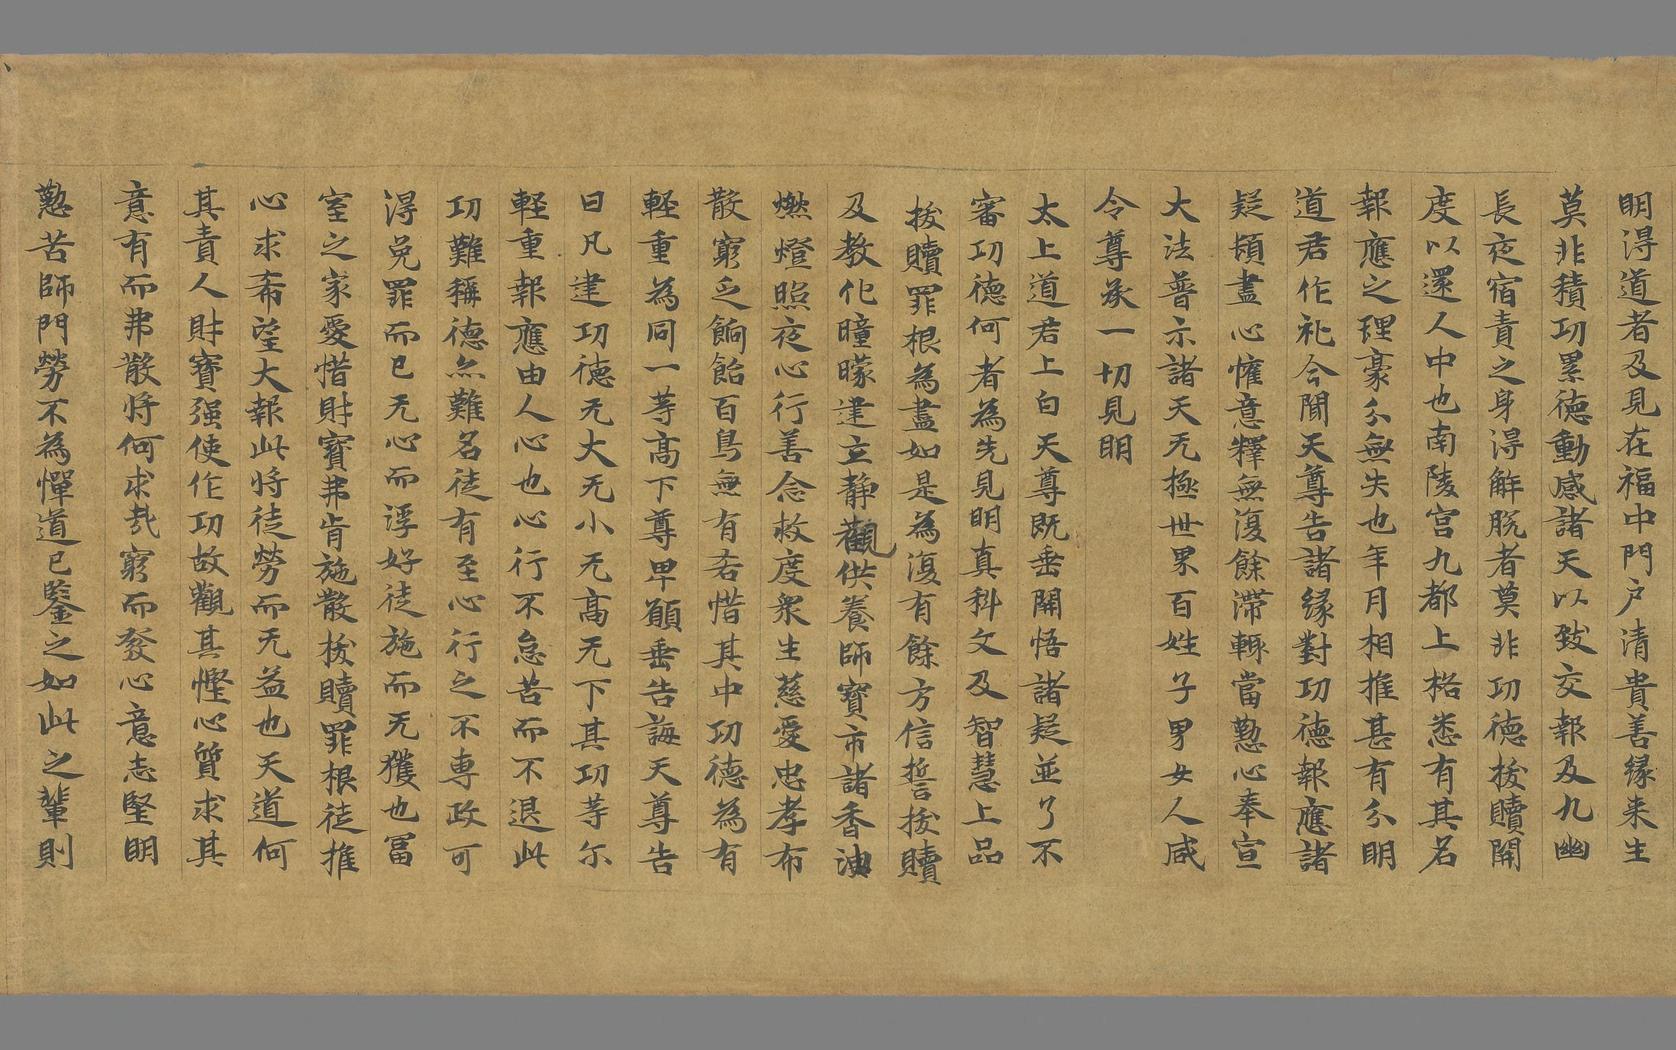 明淂道者及見在福中門户清貴善緣来生
莫非積功累徳動感諸天以致交報及九幽
長夜宿責之身淂解脱者莫非功徳拔贖開
度以還人中也南陵宫九都上格悉有其名
報應之理豪分無失也年月相推甚有分明
道君作礼今聞天尊告諸緣對功徳報應諸
疑頓盡心懽意釋無復餘滯輙當懃心奉宣
大法普示諸天无極世界百姓子男女人咸
令尊承一切見明
太上道君上白天尊既垂開悟諸疑並了不
審功德何者為先見明真科文及智慧上品
拔贖罪根為盡如是為復有餘方信誓拔贖
及教化瞳矇建立静觀供養師寳市諸香油
燃燈照夜心行善念救度衆生慈愛忠孝布
散窮乏餉飴百鳥無有吝惜其中功德為有
軽重為同一等高下尊卑願垂告誨天尊告
曰凡建功德无大无小无高无下其功等尓
軽重報應由人心也心行不怠苦而不退此
功難稱德亦難名徒有至心行之不専政可
淂免罪而已无心而浮好徒施而无獲也冨
室之家愛惜財寳弗肯施散拔贖罪根徒推
心求希望大報此将徒勞而无益也天道何
其責人財寳强使作功故觀其慳心質求其
意有而弗散将何求㢤窮而發心意志堅明
懃苦師門勞不為憚道已鑒之如此之輩則